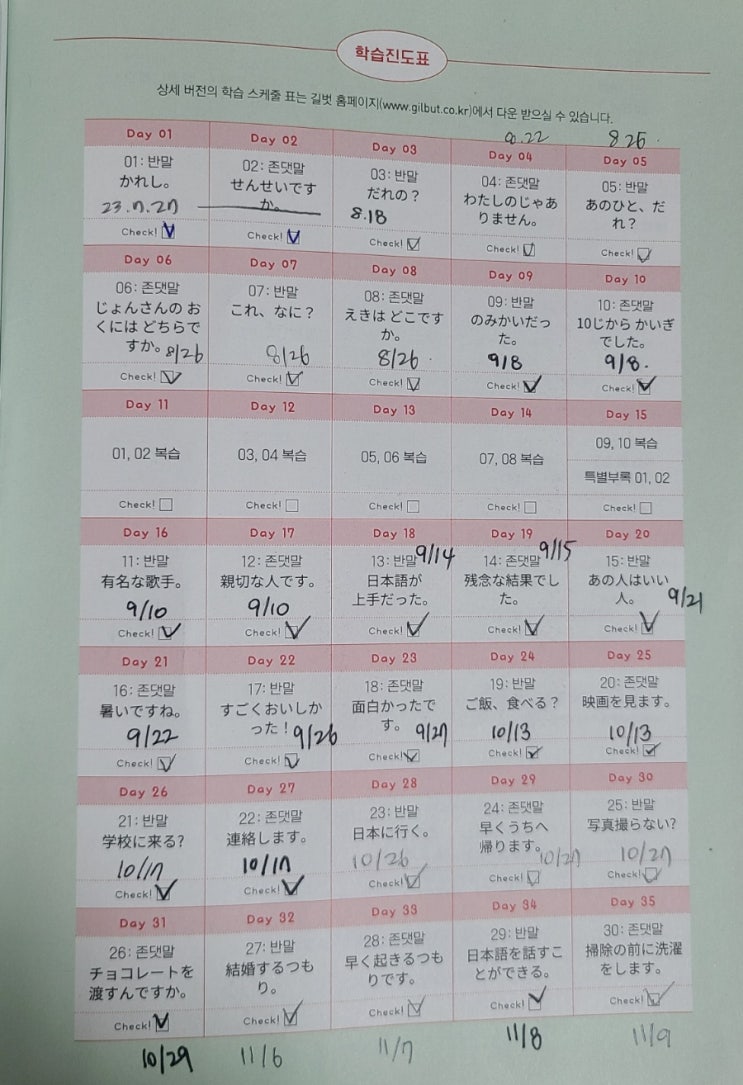 학습진도표
상세 버전의 학습 스케줄 표는 길벗 홈페이지(www.gilbut.co.kr)에서 다운 받으실 수 있습니다.
8.22 8.25
Day 01 Day 02 Day 03 Day 04 Day 05
01: 반말
かれし。
23.7.27
Check!
02: 존댓말
せんせいです
か。
Check!
03: 반말
だれの?
8.18
Check!
04: 존댓말
わたしのじゃあ
りません。
Check!
05: 반말
あのひと、だ
れ?
Check!
Day 06 Day 07 Day 08 Day 09 Day 10
06: 존댓말
じょんさんの お
くには どちらで
すか。 8/26
Check!
07: 반말
これ、なに?
8/26
Check!
08: 존댓말
えきは どこです
か。
8/26
Check!
09: 반말
のみかいだっ
た。
9/8
Check!
10: 존댓말
10じから かいぎ
でした。
9/8.
Check!
Day 11 Day 12 Day 13 Day 14 Day 15
01, 02 복습
Check!
03, 04 복습
Check!
05, 06 복습
Check!
07, 08 복습
Check!
09, 10 복습
특별부록 01, 02
Check!
Day 16 Day 17 Day 18 Day 19 Day 20
11: 반말
有名な歌手。
9/10
Check!
12: 존댓말
親切な人です。
9/10
Check!
13: 반말 9/14
日本語が
上手だった。
Check!
14: 존댓말 9/15
残念な結果でし
た。
Check!
15: 반말
あの人はいい
人。 9/21
Check!
Day 21 Day 22 Day 23 Day 24 Day 25
16: 존댓말
暑いですね。
9/22
Check!
17: 반말
すごくおいしか
った! 9/26
Check!
18: 존댓말
面白かったで
す。 9/27
Check!
19: 반말
ご飯、食べる?
10/13
Check!
20: 존댓말
映画を見ます。
10/13
Check!
Day 26 Day 27 Day 28 Day 29 Day 30
21: 반말
学校に来る?
10/17
Check!
22: 존댓말
連絡します。
10/17
Check!
23: 반말
日本に行く。
10/26
Check!
24: 존댓말
早くうちへ
帰ります。
10/27
Check!
25: 반말
写真撮らない?
10/27
Check!
Day 31 Day 32 Day 33 Day 34 Day 35
26: 존댓말
チョコレートを
渡すんですか。
Check!
27: 반말
結婚するつも
り。
Check!
28: 존댓말
早く起きるつも
りです。
Check!
29: 반말
日本語を話すこ
とができる。
Check!
30: 존댓말
掃除の前に洗濯
をします。
Check!
10/29 11/6 11/7 11/8 11/9